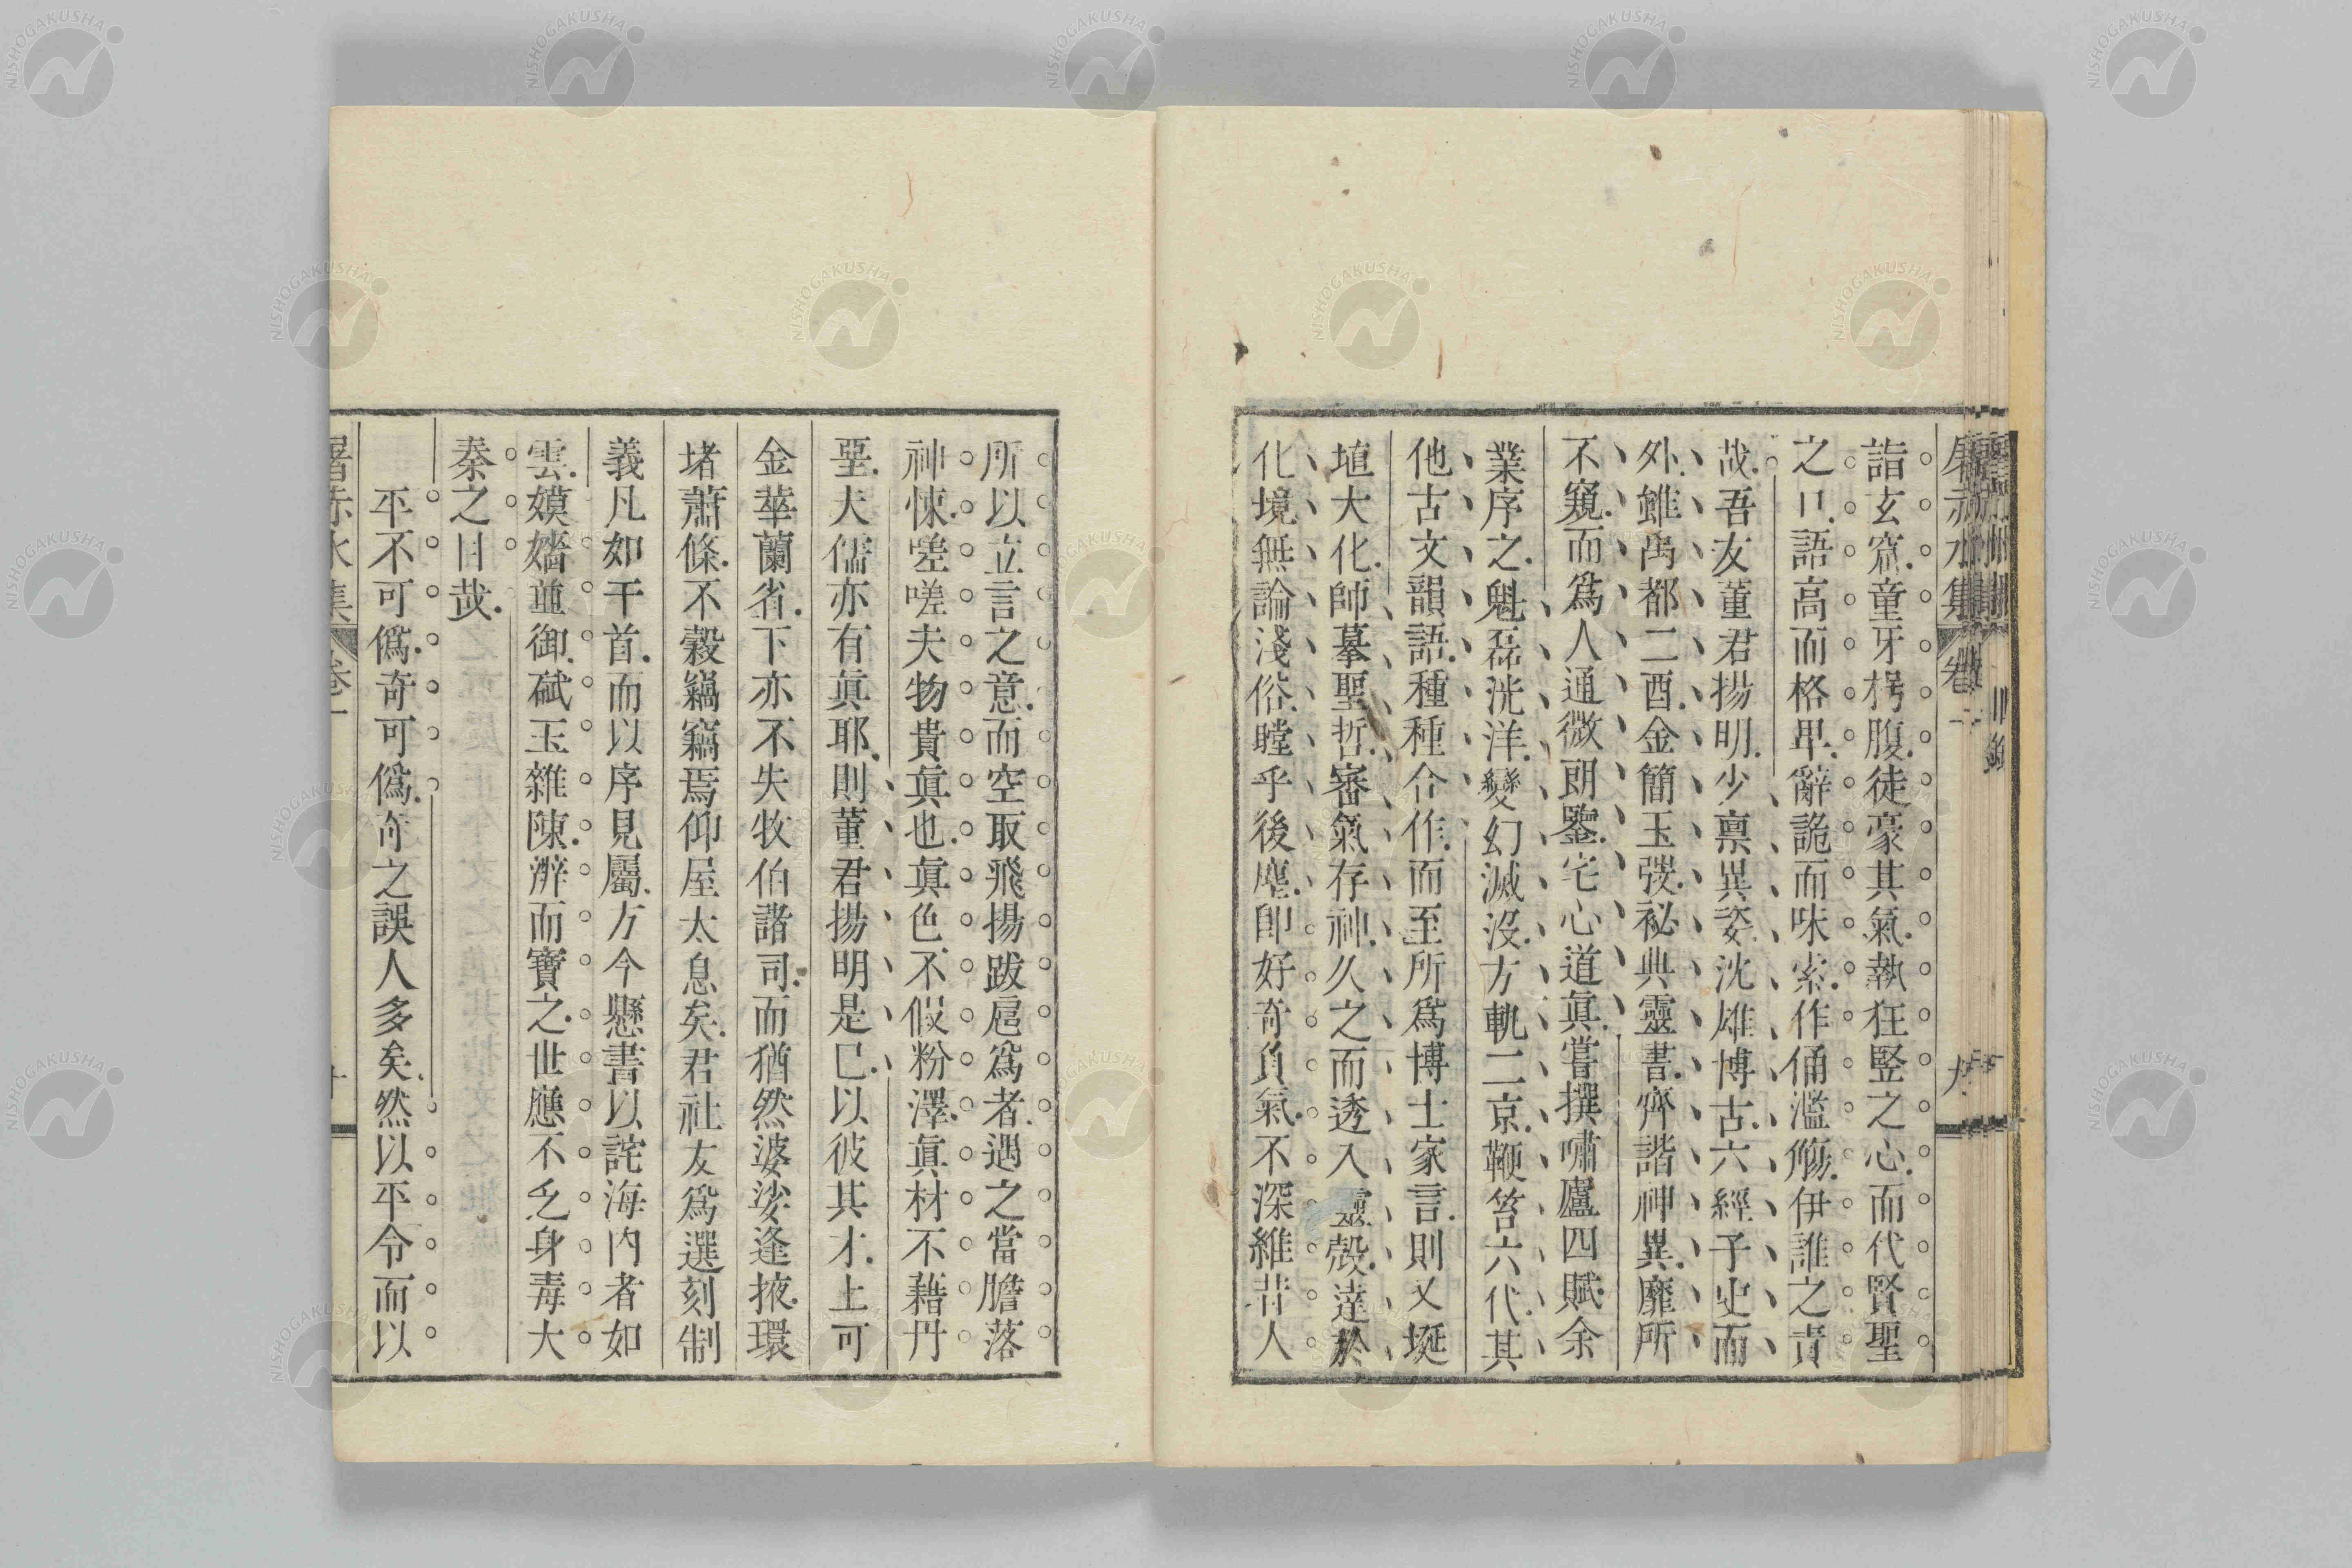 屠赤水集 卷一 九
詣玄窟童牙枵腹徒豪其氣執狂竪之心而代賢聖
之口語高而格卑辭詭而味索作俑濫觴伊誰之責
哉吾友董君揚明少禀異姿沈雄博古六經子史而
外雖禹都二酉金簡玉弢祕典靈書齊諧神異靡所
不窺而爲人通微朗鑒宅心道眞嘗撰嘯廬四賦余
業序之魁磊洸洋變幻滅沒方軌二京鞭笞六代其
他古文韻語種種合作而至所爲博士家言則又埏
埴大化師摹聖哲審氣存神久之而透入靈殻達於
化境無論淺俗瞠乎後塵卽好奇負氣不深維昔人
所以立言之意而空取飛揚跋扈爲者遇之當膽落
神悚嗟嗟夫物貴眞也眞色不假粉澤眞材不藉丹
堊夫儒亦有眞耶則董君揚明是已以彼其才上可
金華蘭省下亦不失牧伯諸司而猶然婆娑逢掖環
堵蕭條不穀竊竊焉仰屋太息矣君社友爲選刻制
義凡如干首而以序見屬方今懸書以詫海內者如
雲嫫嬙並御碔玉雜陳辨而寶之世應不乏身毒大
秦之目哉
平不可僞奇可僞奇之誤人多矣然以平令而以
屠赤水集 卷一
NISHOGAKUSHA